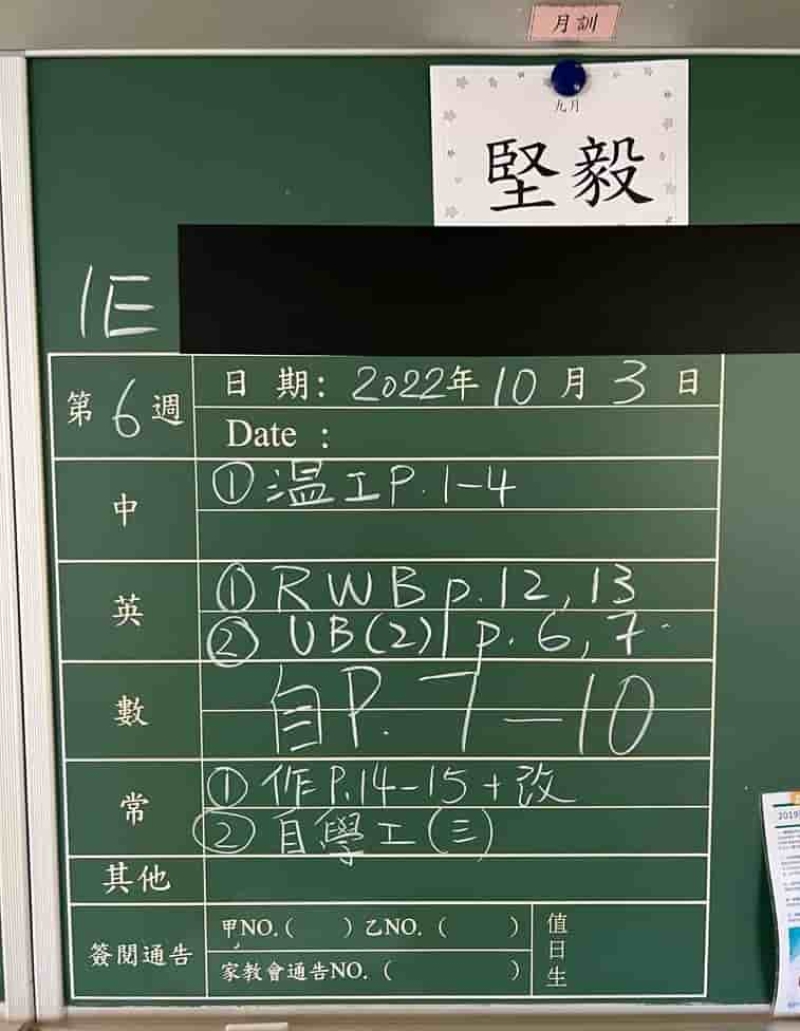 月訓
九月
堅毅
1E
第6週
日 期: 2022年10月3日
Date :
中
①溫工P.1-4
英
①RWB p.12,13
②UB(2) p.6,7
數
自P.7—10
常
①作P.14-15+改
②自學工(三)
其他
簽閱通告
甲NO.( ) 乙NO.( )
家教會通告NO.( )
值日生
2019